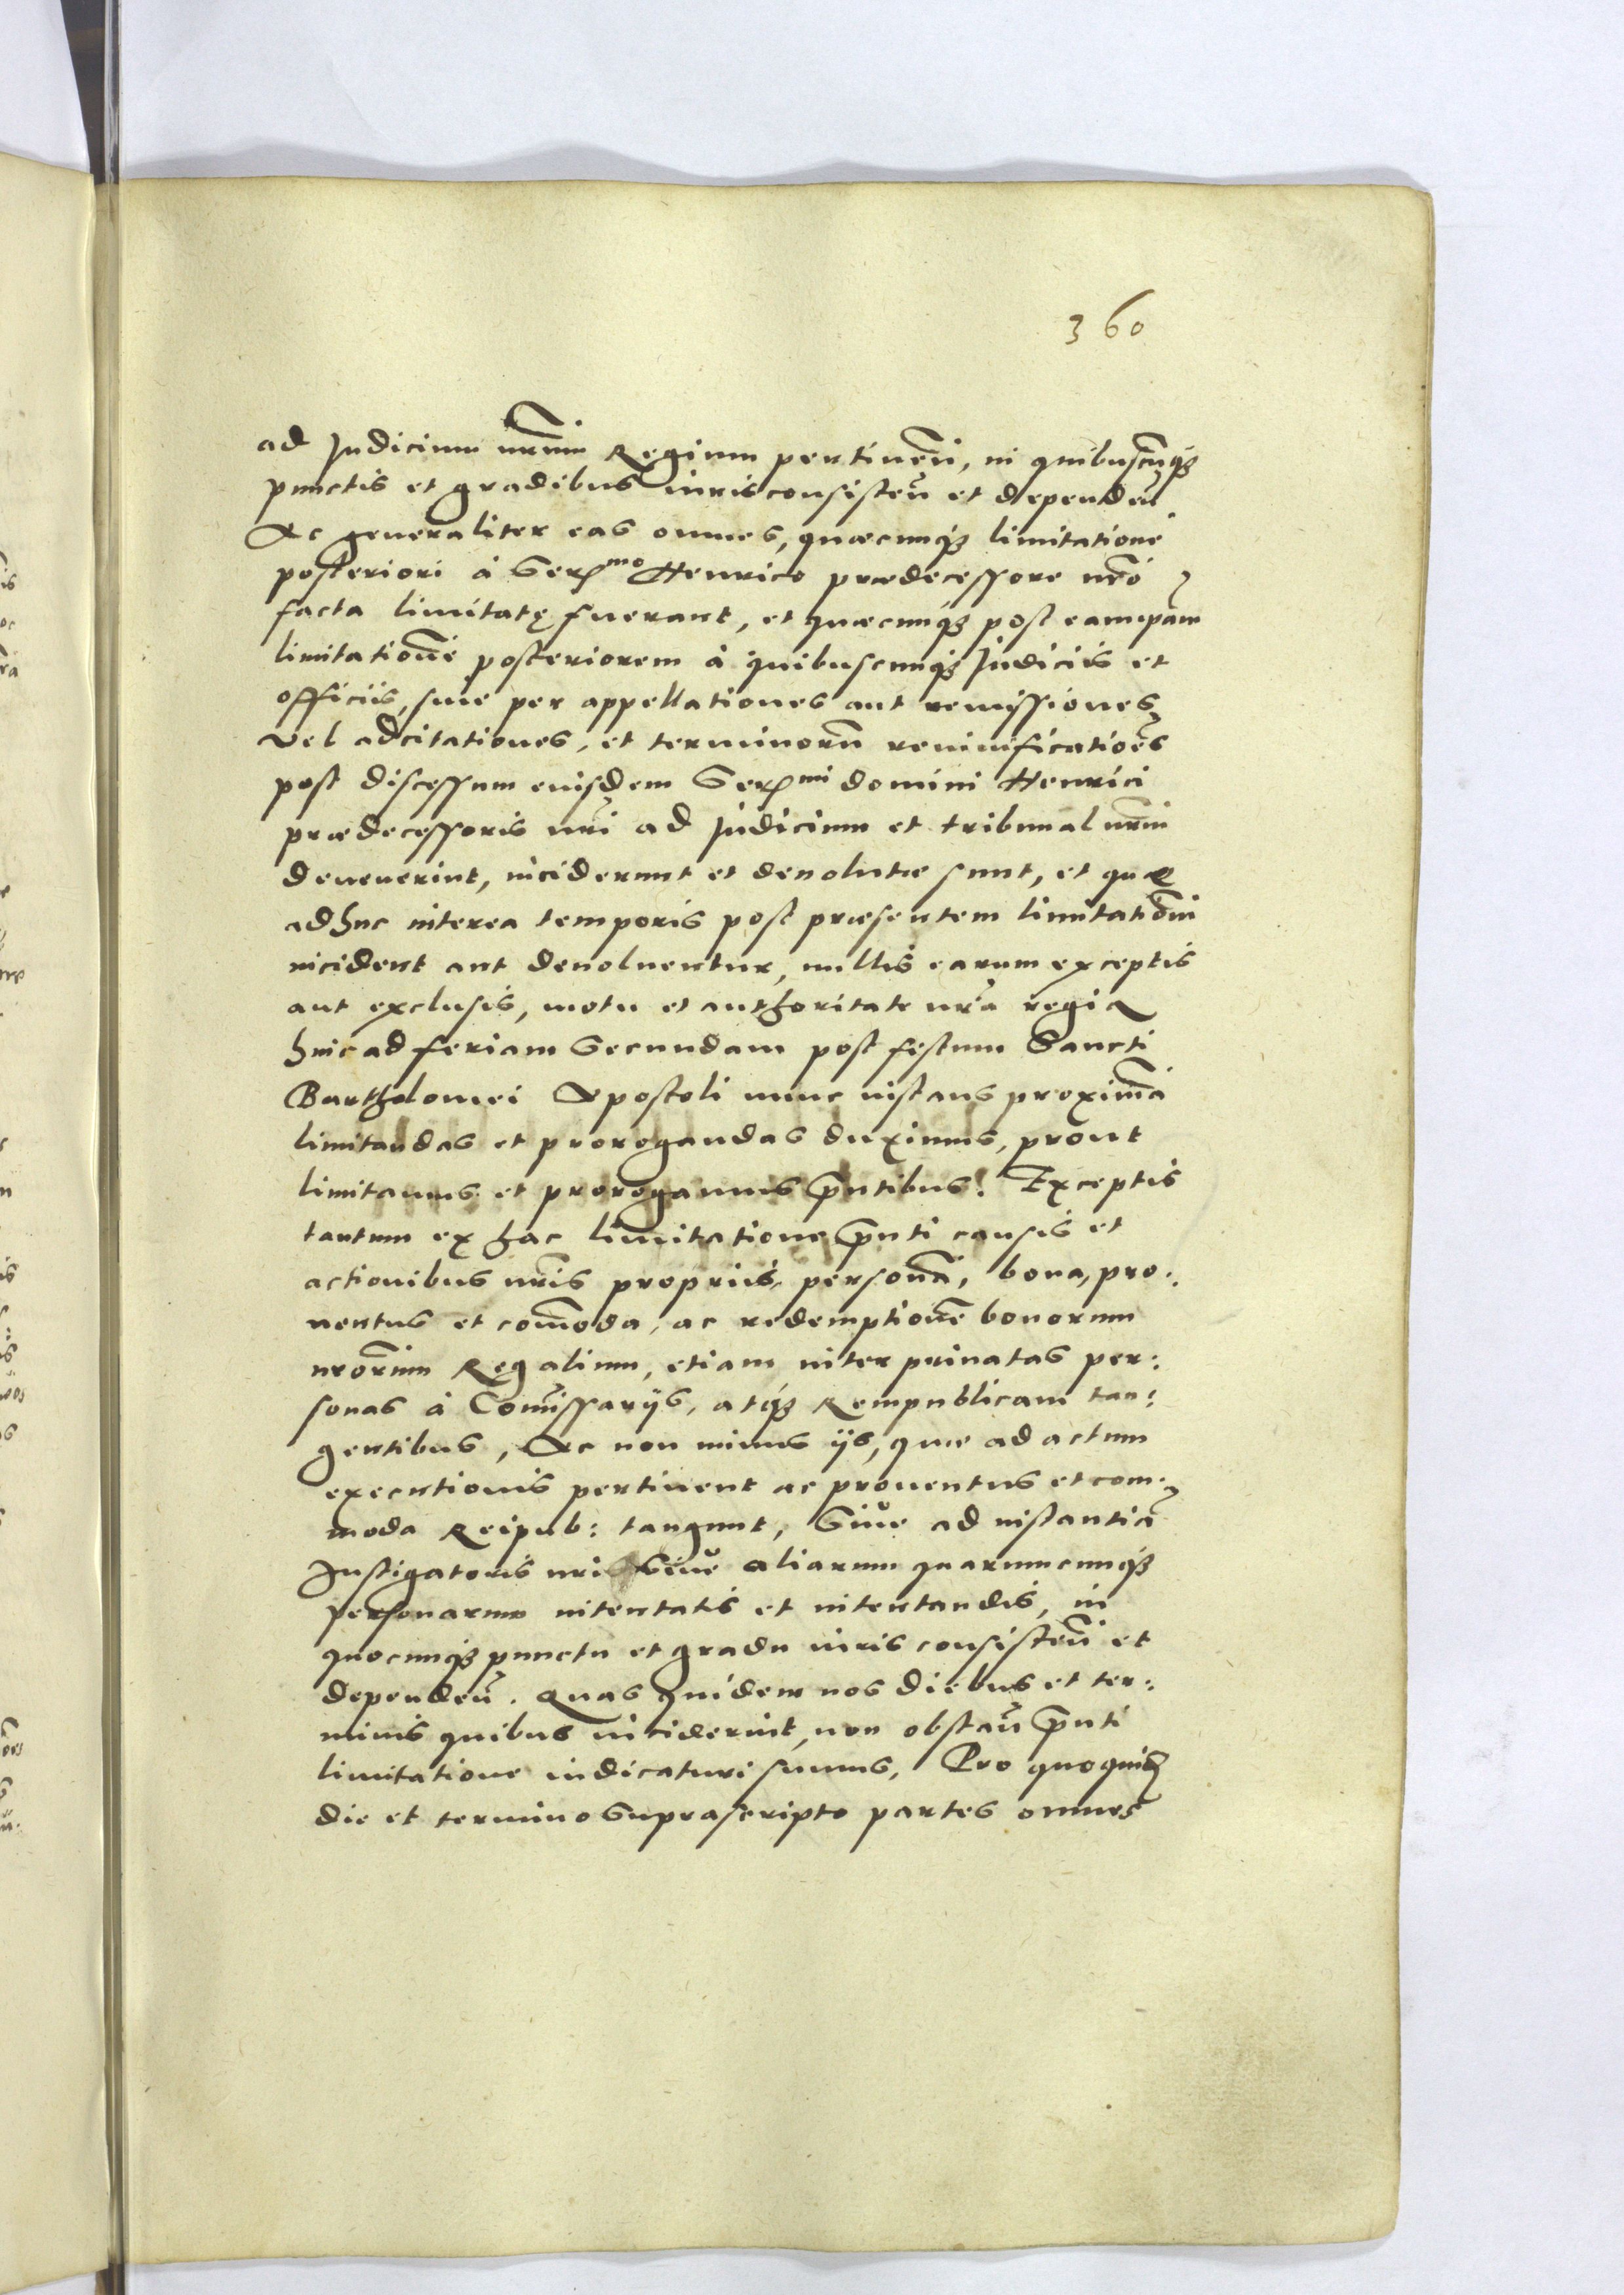 360
ad Judicium nrm̃ Regium pertineñ, in quibuscũqȝ
punctis et gradibus iuris consisteñ et dependeñ
Ac generaliter eas omnes, quæcunqȝ limitatione
posteriori à Serᵐᵒ Henrico prædecessore nrõ
facta limitatę fuerant, et quæcunqȝ post eampam̃
limitationẽ posteriorem à quibuscunqȝ Judiciis et
officiis, siue per appellationes aut remissiones,
vel adcitationes, et terminorũ reuiuificatiões
post discessum eiusdem Serᵐⁱ domini Henrici
prædecessoris nrĩ ad Judicium et tribunal nrm̃
deuenerint, inciderunt et deuolutæ sunt, et quæ
adhuc interea temporis post præsentem limitatiõm
incident aut deuoluentur, nullis earum exceptis
aut exclusis, motu et authoritate nrã regia
huic ad feriam Secundam post festum Sancti
Bartholomei Apostoli nunc instans proximã
limitandas et prorogandas duximus, prout
limitamus et prorogamus pñtibus. Exceptis
tantum ex hac limitatione pñti causis et
actionibus nrĩs propriis, personã, bona, pro:
uentus et com̃oda, ac redemptionẽ bonorum
nrõrum Regalium, etiam inter priuatas per:
sonas à Com̃issarijs, atqȝ Rempublicam tan:
gentibus, Ac non minus ijs, quæ ad actum
executionis pertinent ac prouentus et com:
moda Reipub: tangunt, Siue ad instantiã
Instigatoris nri Siue aliarum quarumcunqȝ
personarum intentatis et intentandis, in
quocunqȝ punctu et gradu iuris consisteñ et
dependeñ. Quas quidem nos diebus et ter:
minis quibus inciderint, non obstañ pñti
limitatione iudicaturi sumus, Pro quo quidȝ
die et termino Suprascripto partes omnes